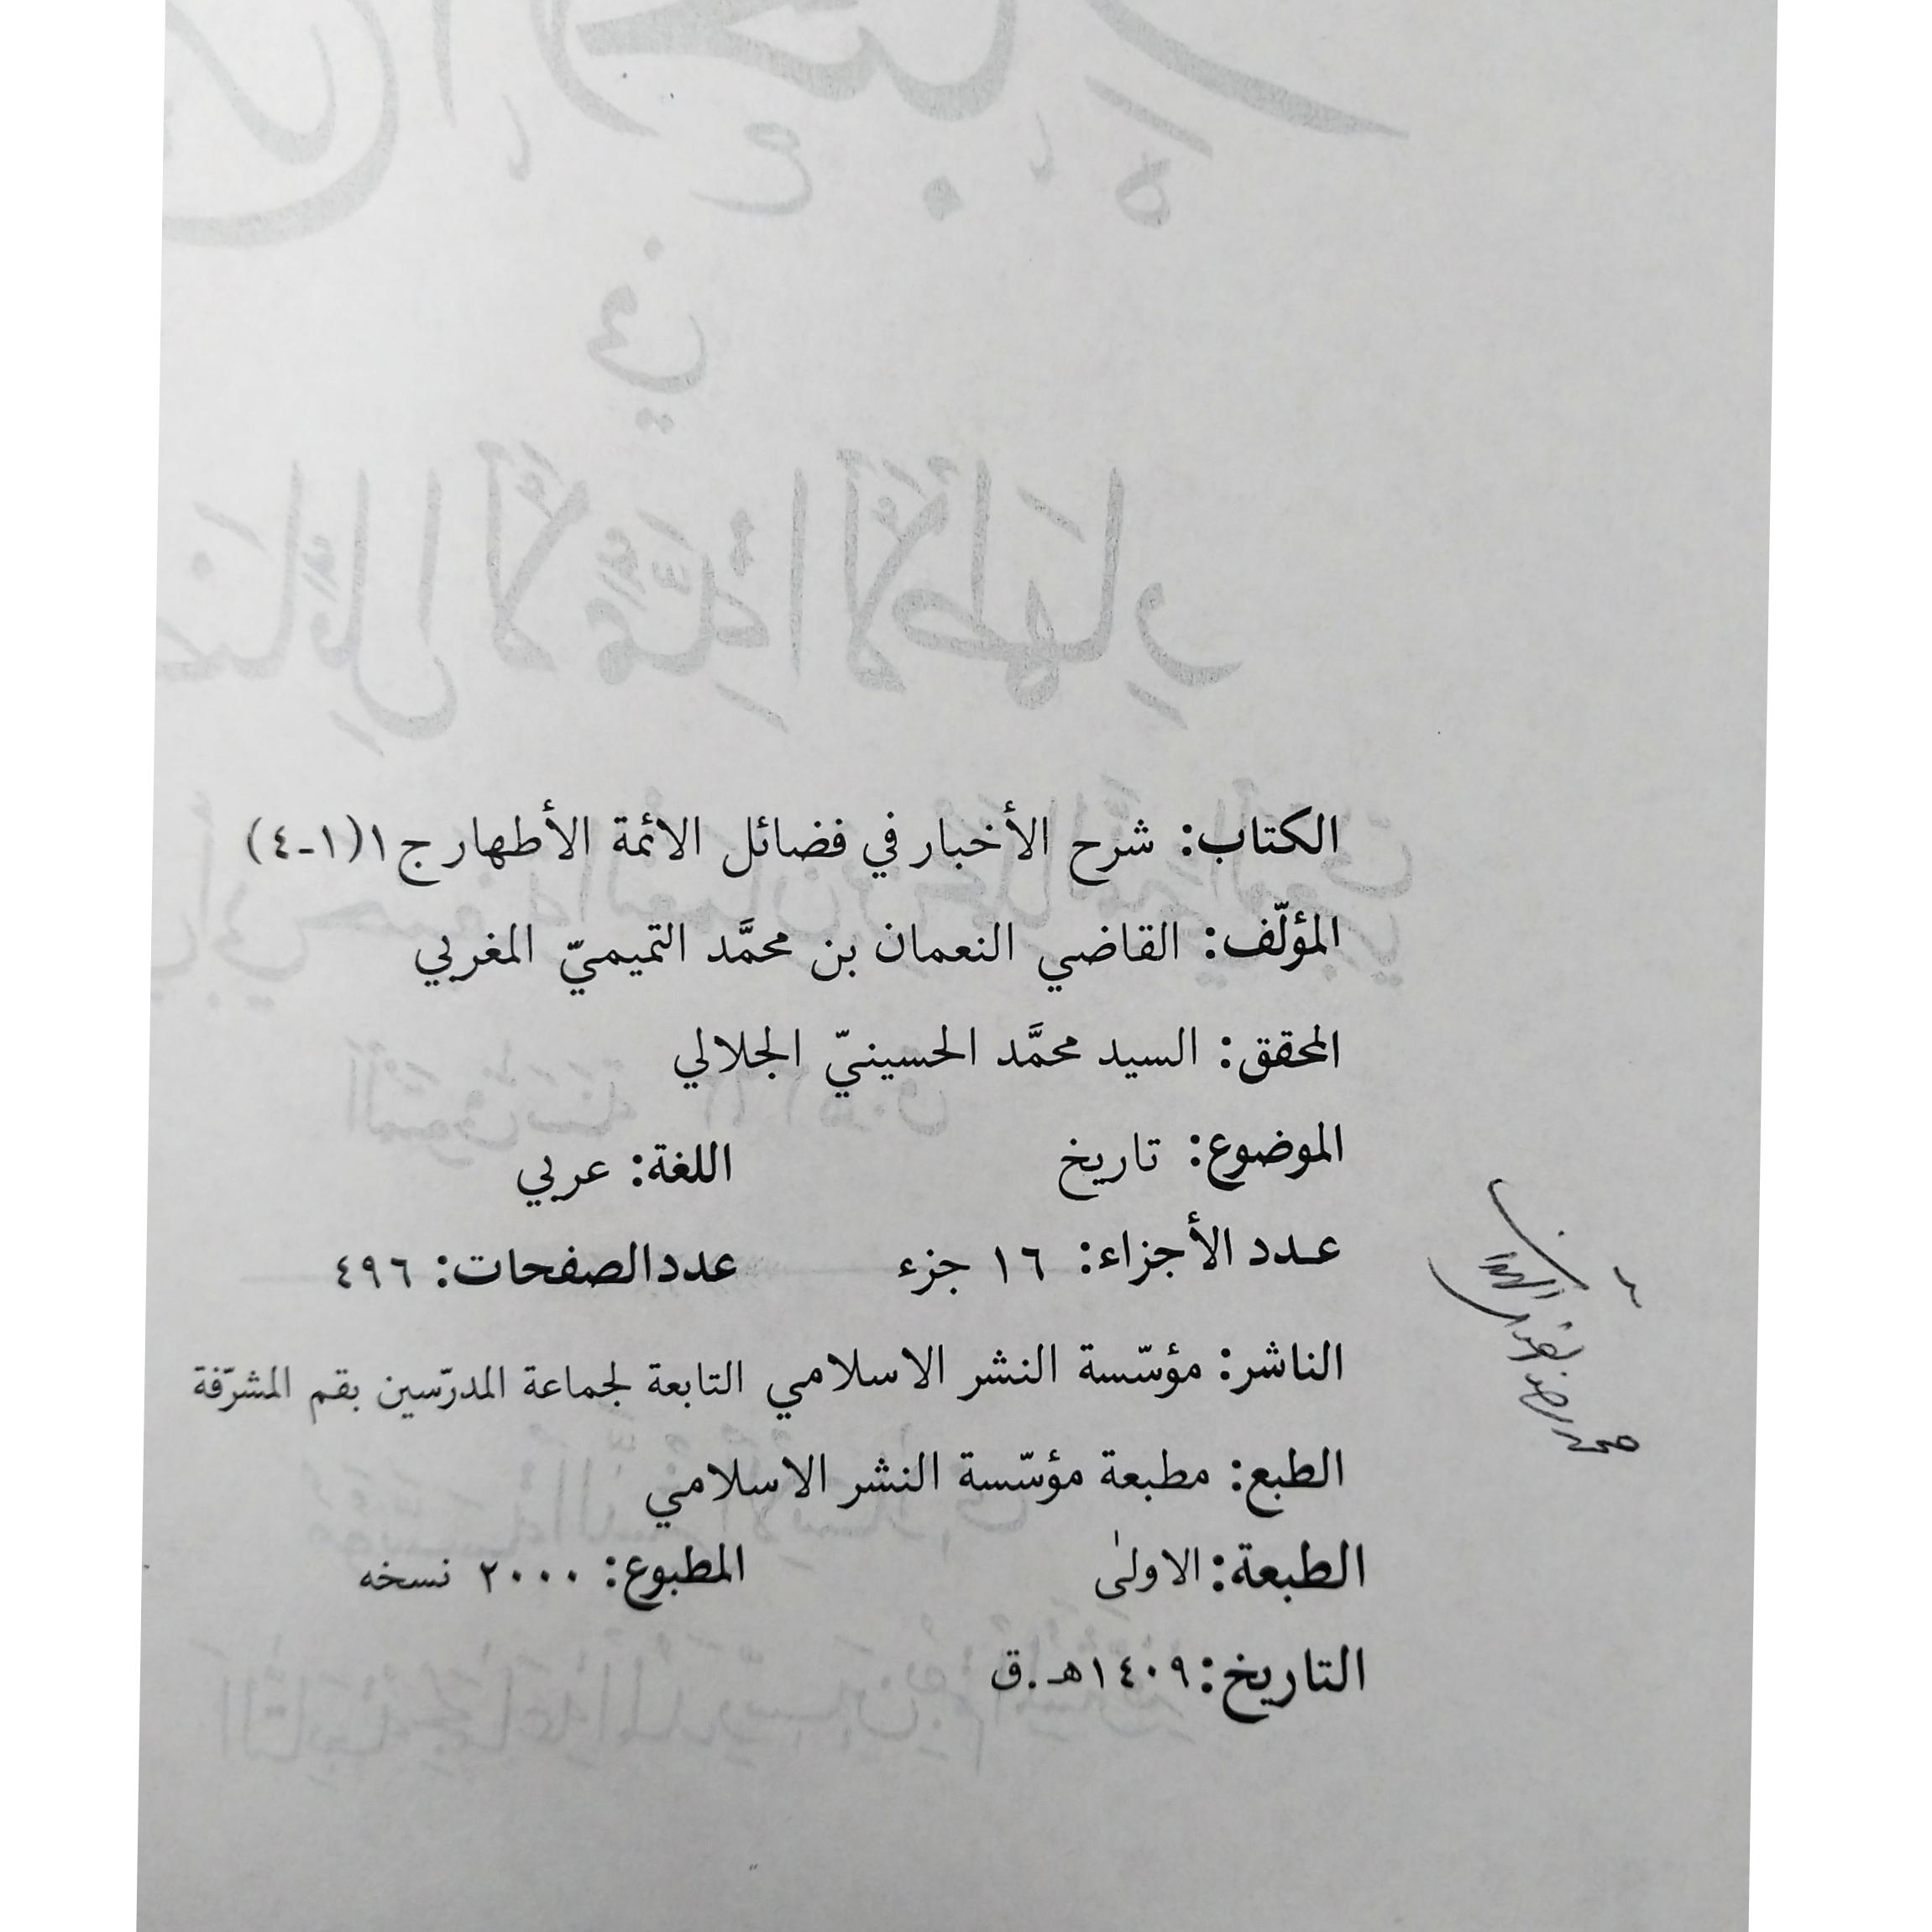 الكتاب: شرح الأخبار في فضائل الائمة الأطهار ج١(١-٤)
المؤلّف: القاضي النعمان بن محمَّد التميميّ المغربي
المحقق: السيد محمَّد الحسينيّ الجلالي
الموضوع: تاريخ اللغة: عربي
عدد الأجزاء: ١٦ جزء عدد الصفحات: ٤٩٦
الناشر: مؤسّسة النشر الاسلامي التابعة لجماعة المدرّسين بقم المشرّفة
الطبع: مطبعة مؤسّسة النشر الاسلامي
الطبعة: الاولىٰ المطبوع: ٢٠٠٠ نسخه
التاريخ: ١٤٠٩هـ.ق